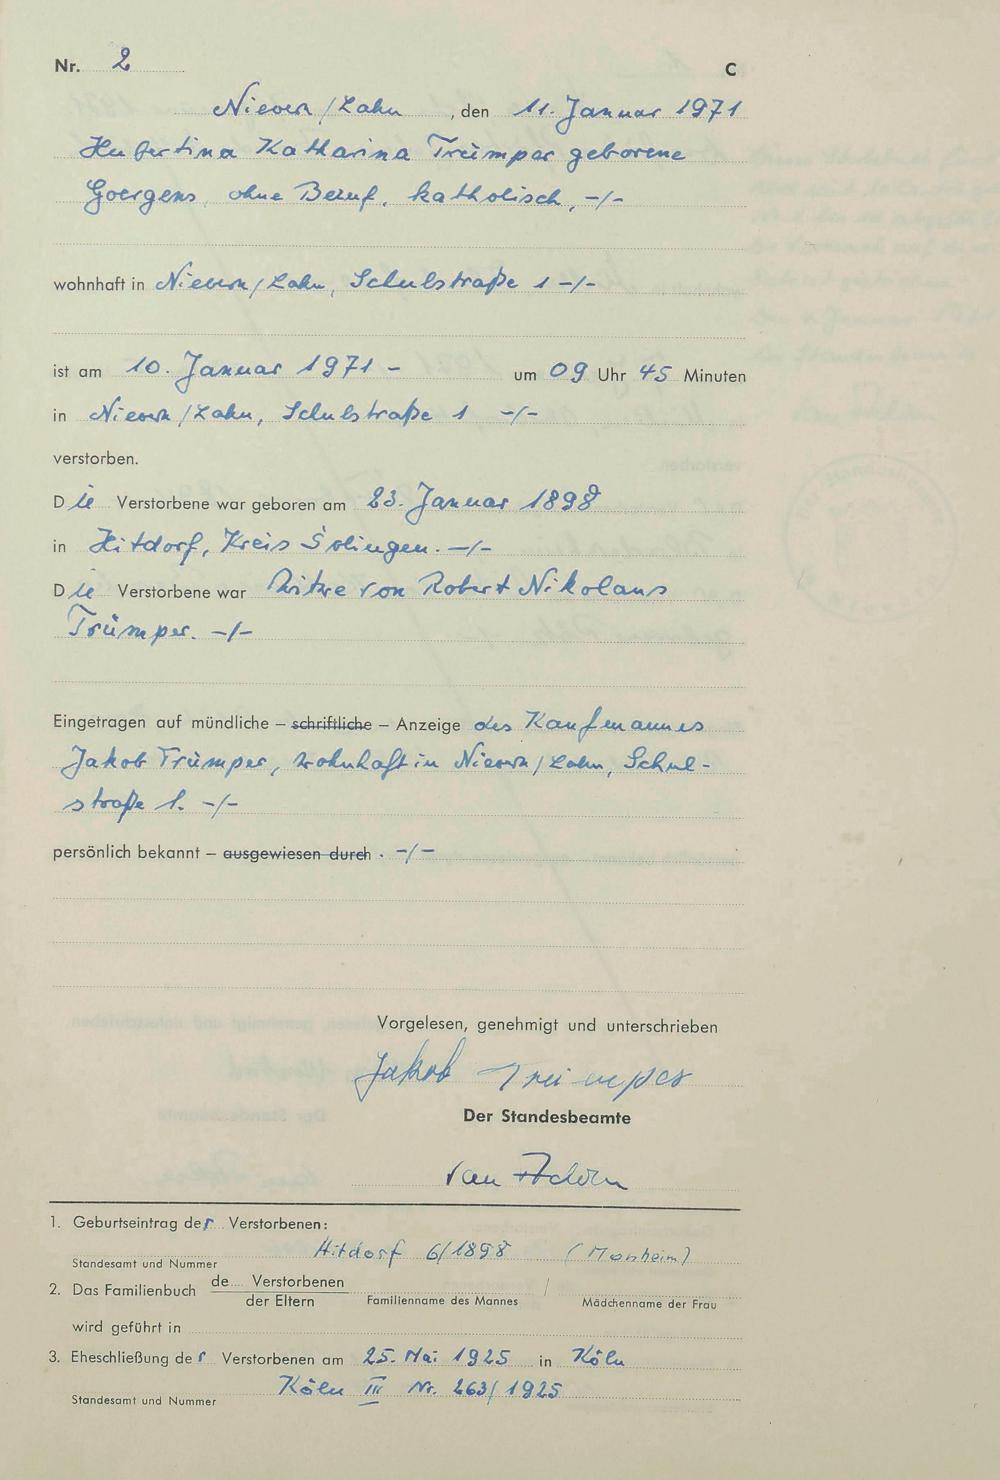 Nr. 2
C
Nievern/Lahn, den 11. Januar 1971
Hubertina Katharina Trümper geborene
Goergens, ohne Beruf, katholisch, -/-
wohnhaft in Nievern/Lahn, Schulstraße 1 -/-
ist am 10. Januar 1971 - um 09 Uhr 45 Minuten
in Nievern/Lahn, Schulstraße 1 -/-
verstorben.
Die Verstorbene war geboren am 23. Januar 1898
in Hitdorf, Kreis Solingen. -/-
Die Verstorbene war Witwe von Robert Nikolaus
Trümper. -/-
Eingetragen auf mündliche – schriftliche – Anzeige des Kaufmannes
Jakob Trümper, wohnhaft in Nievern/Lahn, Schul-
straße 1. -/-
persönlich bekannt – ausgewiesen durch . -/-
Vorgelesen, genehmigt und unterschrieben
Jakob Trümper
Der Standesbeamte
van
1. Geburtseintrag der Verstorbenen:
Hitdorf 6/1898 (Monheim)
Standesamt und Nummer
2. Das Familienbuch de Verstorbenen /
der Eltern Familienname des Mannes Mädchenname der Frau
wird geführt in
3. Eheschließung der Verstorbenen am 25. Mai 1925 in Köln
Köln III Nr. 263/1925
Standesamt und Nummer